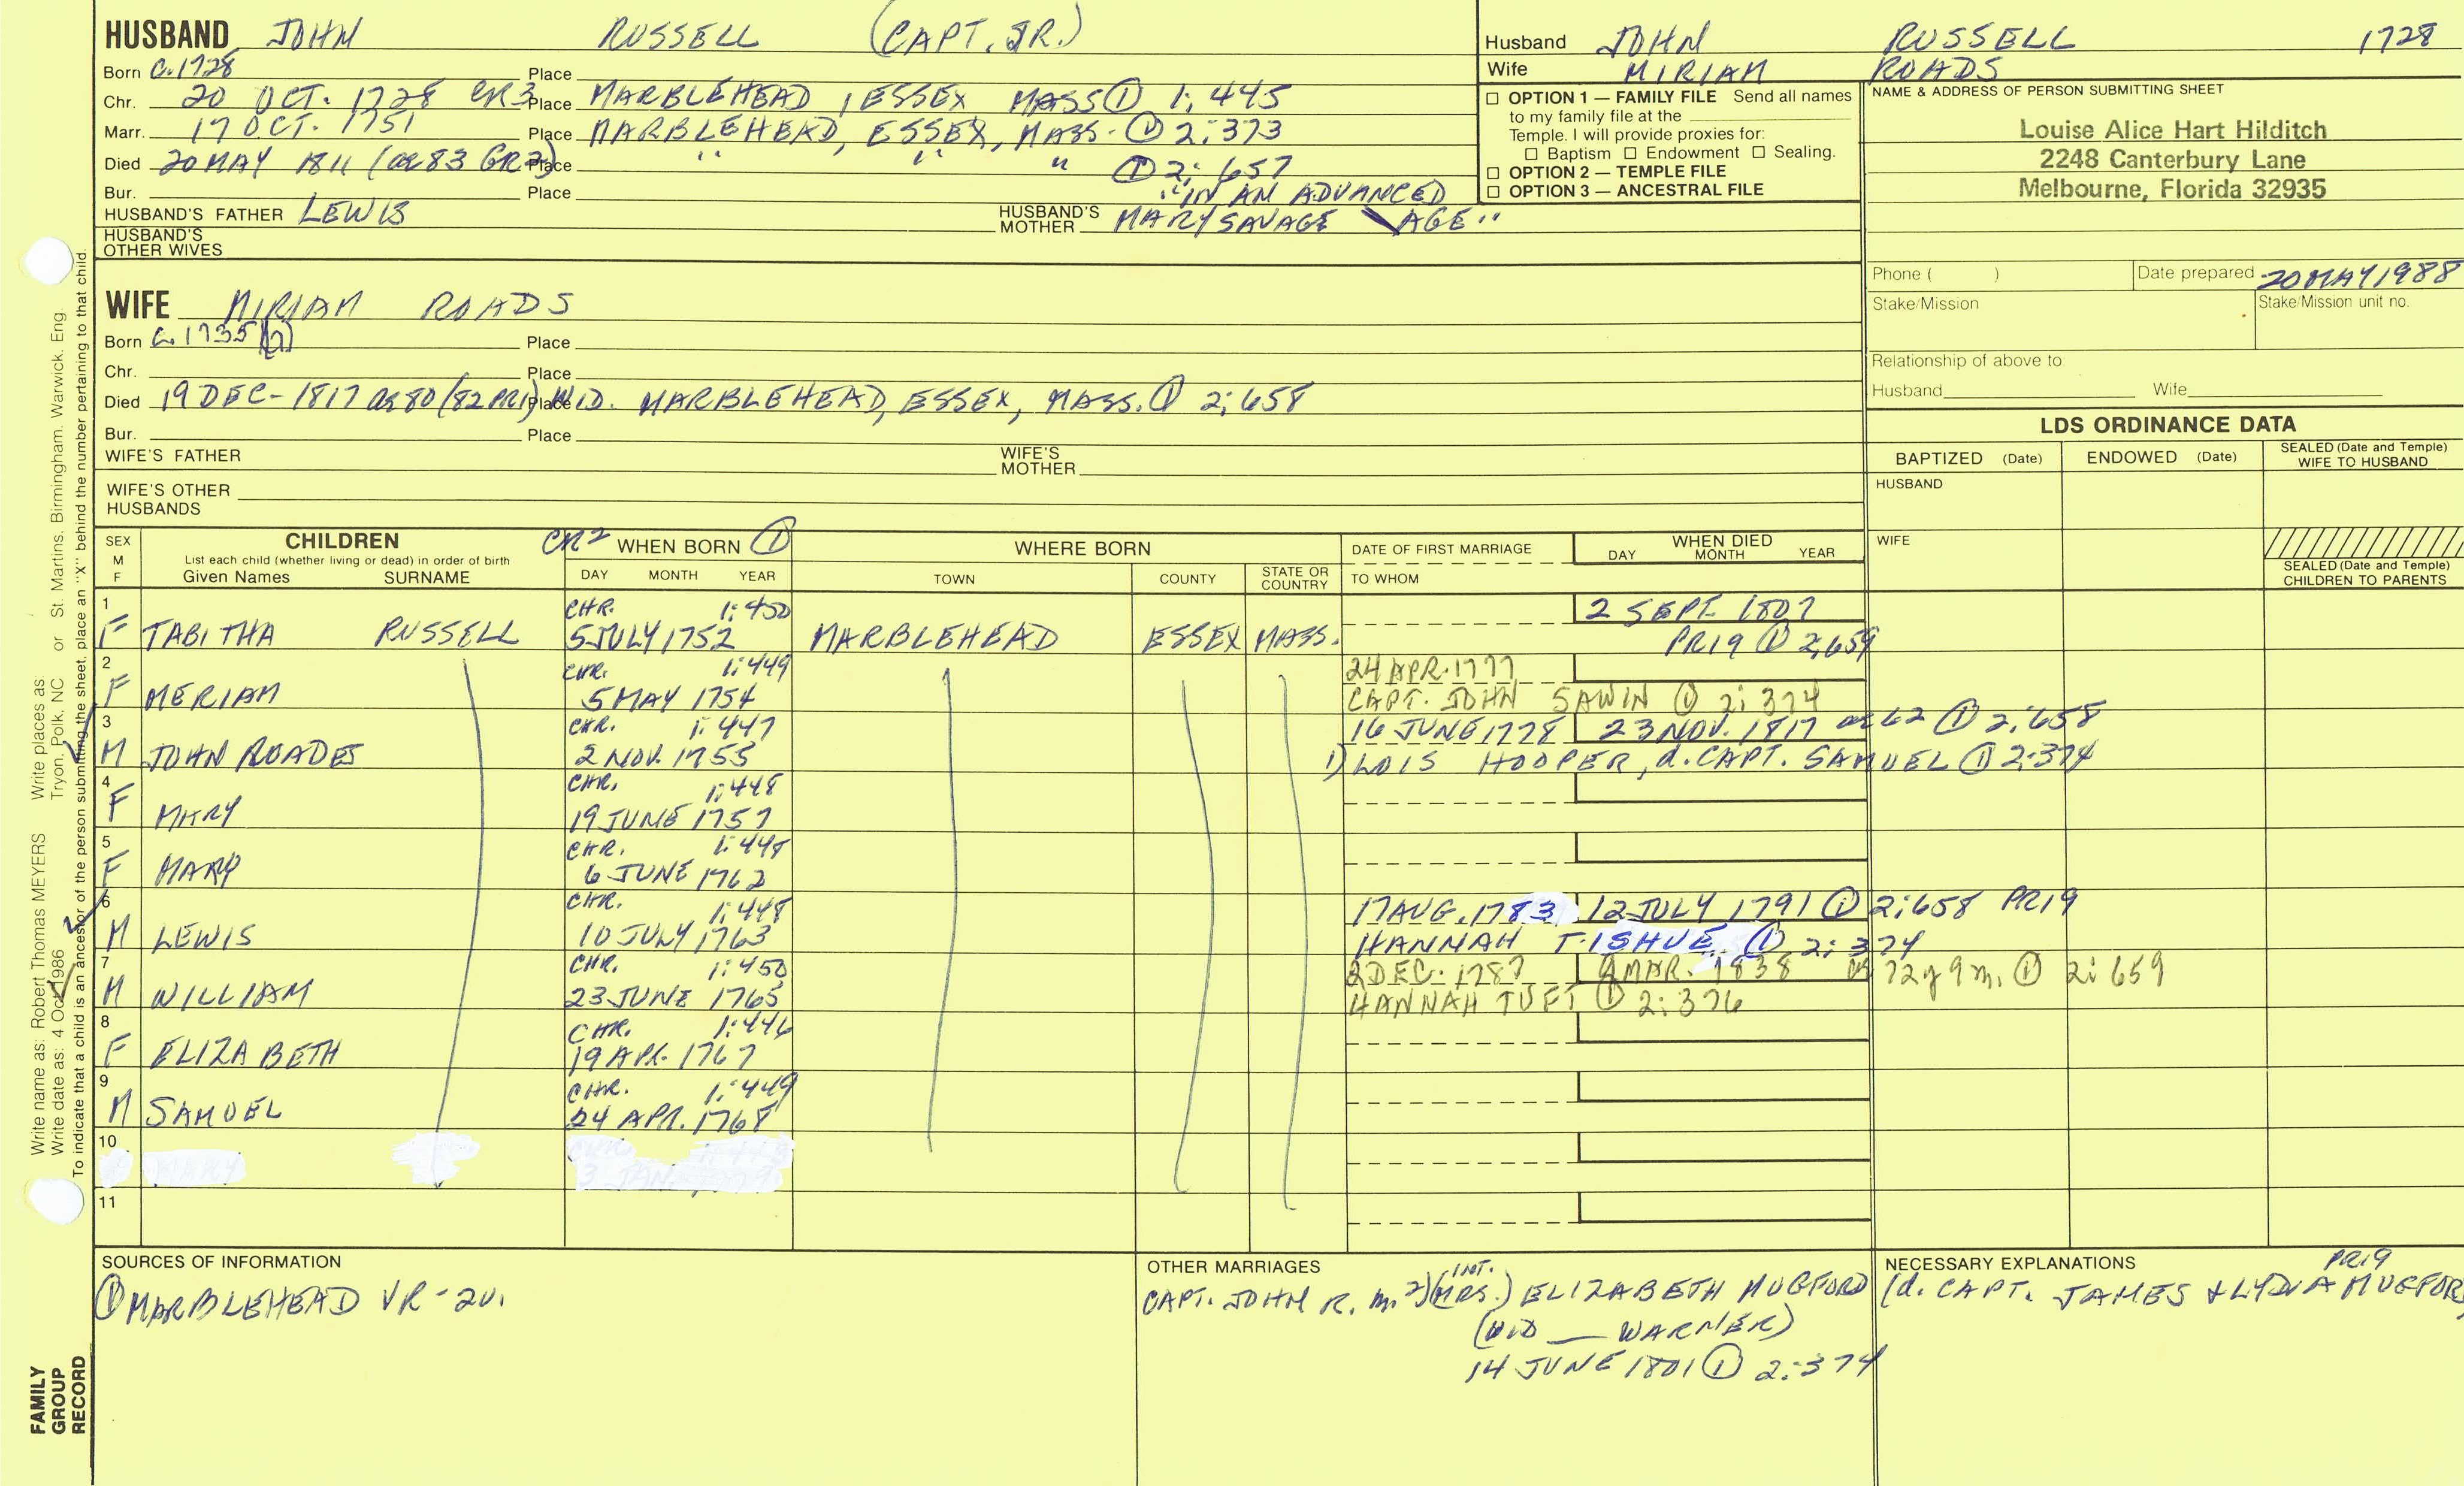 HUSBAND JOHN RUSSELL (CAPT. JR.)
Born C. 1728 Place
Chr. 20 OCT. 1728 CR3 Place MARBLEHEAD, ESSEX MASS ① 1:445
Marr. 17 OCT. 1751 Place MARBLEHEAD, ESSEX, MASS. ① 2:373
Died 20 MAY 1811 (ae 83 GR2) Place " " " ① 2:657
Bur. Place "IN AN ADVANCED AGE"
HUSBAND'S FATHER LEWIS HUSBAND'S MOTHER MARY SAVAGE
HUSBAND'S OTHER WIVES
Husband JOHN RUSSELL 1728
Wife MIRIAM ROADS
☐ OPTION 1 — FAMILY FILE Send all names
to my family file at the
Temple. I will provide proxies for:
☐ Baptism ☐ Endowment ☐ Sealing.
☐ OPTION 2 — TEMPLE FILE
☐ OPTION 3 — ANCESTRAL FILE
NAME & ADDRESS OF PERSON SUBMITTING SHEET
Louise Alice Hart Hilditch
2248 Canterbury Lane
Melbourne, Florida 32935
Phone ( ) Date prepared 20 MAY 1988
Stake/Mission Stake/Mission unit no.
Relationship of above to:
Husband Wife
WIFE MIRIAM ROADS
Born C. 1735
Place
Chr. Place
Died 19 DEC - 1817 ae 80 (82 PR1) Place WID. MARBLEHEAD, ESSEX, MASS. ① 2:658
Bur. Place
WIFE'S FATHER WIFE'S MOTHER
WIFE'S OTHER HUSBANDS
LDS ORDINANCE DATA
BAPTIZED (Date) ENDOWED (Date) SEALED (Date and Temple) WIFE TO HUSBAND
HUSBAND
WIFE
SEALED (Date and Temple) CHILDREN TO PARENTS
SEX M F
CHILDREN
List each child (whether living or dead) in order of birth
Given Names SURNAME
CR2 WHEN BORN ①
DAY MONTH YEAR
WHERE BORN
TOWN COUNTY STATE OR COUNTRY
DATE OF FIRST MARRIAGE
TO WHOM
WHEN DIED
DAY MONTH YEAR
1 CHR. 1:450 2 SEPT. 1807
F TABITHA RUSSELL 5 JULY 1752 MARBLEHEAD ESSEX MASS. PR19 ① 2:659
2 CHR. 1:449 24 APR. 1777
F MERIAM 5 MAY 1754 CAPT. JOHN SAWIN ① 2:374
3 CHR. 1:447 16 JUNE 1778 23 NOV. 1817 ae 62 ① 2:658
M JOHN ROADES 2 NOV. 1755 1) LOIS HOOPER, d. CAPT. SAMUEL ① 2:374
4 CHR. 1:448
F MARY 19 JUNE 1757
5 CHR. 1:448
F MARY 6 JUNE 1762
6 CHR. 1:448 17 AUG. 1783 12 JULY 1791 ① 2:658 PR19
M LEWIS 10 JULY 1763 HANNAH TISHUE ① 2:374
7 CHR. 1:450 2 DEC. 1787 MAR. 1838 72y 9m. ① 2:659
M WILLIAM 23 JUNE 1765 HANNAH TUFT ① 2:376
8 CHR. 1:446
F ELIZABETH 19 APR. 1767
9 CHR. 1:449
M SAMUEL 24 APR. 1768
10
11
SOURCES OF INFORMATION
① MARBLEHEAD VR - 2v.
OTHER MARRIAGES
CAPT. JOHN R. m. 2) (INT. MRS.) ELIZABETH MUGFORD
(WID ___ WARNER)
14 JUNE 1801 ① 2:374
NECESSARY EXPLANATIONS PR19
(d. CAPT. JAMES & LYDIA MUGFOR
Write name as: Robert Thomas MEYERS Write places as: Tryon, Polk, NC or St. Martins, Birmingham, Warwick, Eng.
Write date as: 4 Oct 1986
To indicate that a child is an ancestor of the person submitting the sheet, place an "X" behind the number pertaining to that child.
FAMILY
GROUP
RECORD